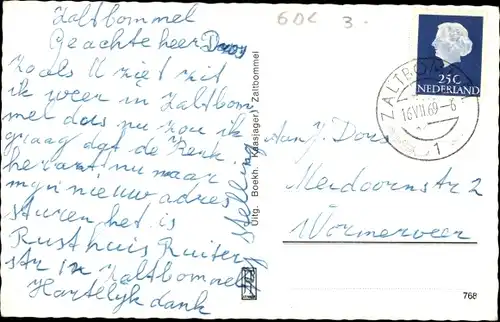 Zaltbommel
Geachte heer Dors
Zoals U ziet zit
ik weer in Zaltbom
mel dus nu zou ik
graag dat de Zenk
herant nu naar
mijn nieuw adres
sturen het is
Rusthuis Ruiter
str 12 Zaltbommel
Hartelijk dank
stelling
Uitg. Boekh. Kaasjager, Zaltbommel
6DC 3-
25C
NEDERLAND
ZALTBOMMEL
16 VII 69 - 6
1
aan J. Dors
Meidoornstr 2
Wormerveer
768